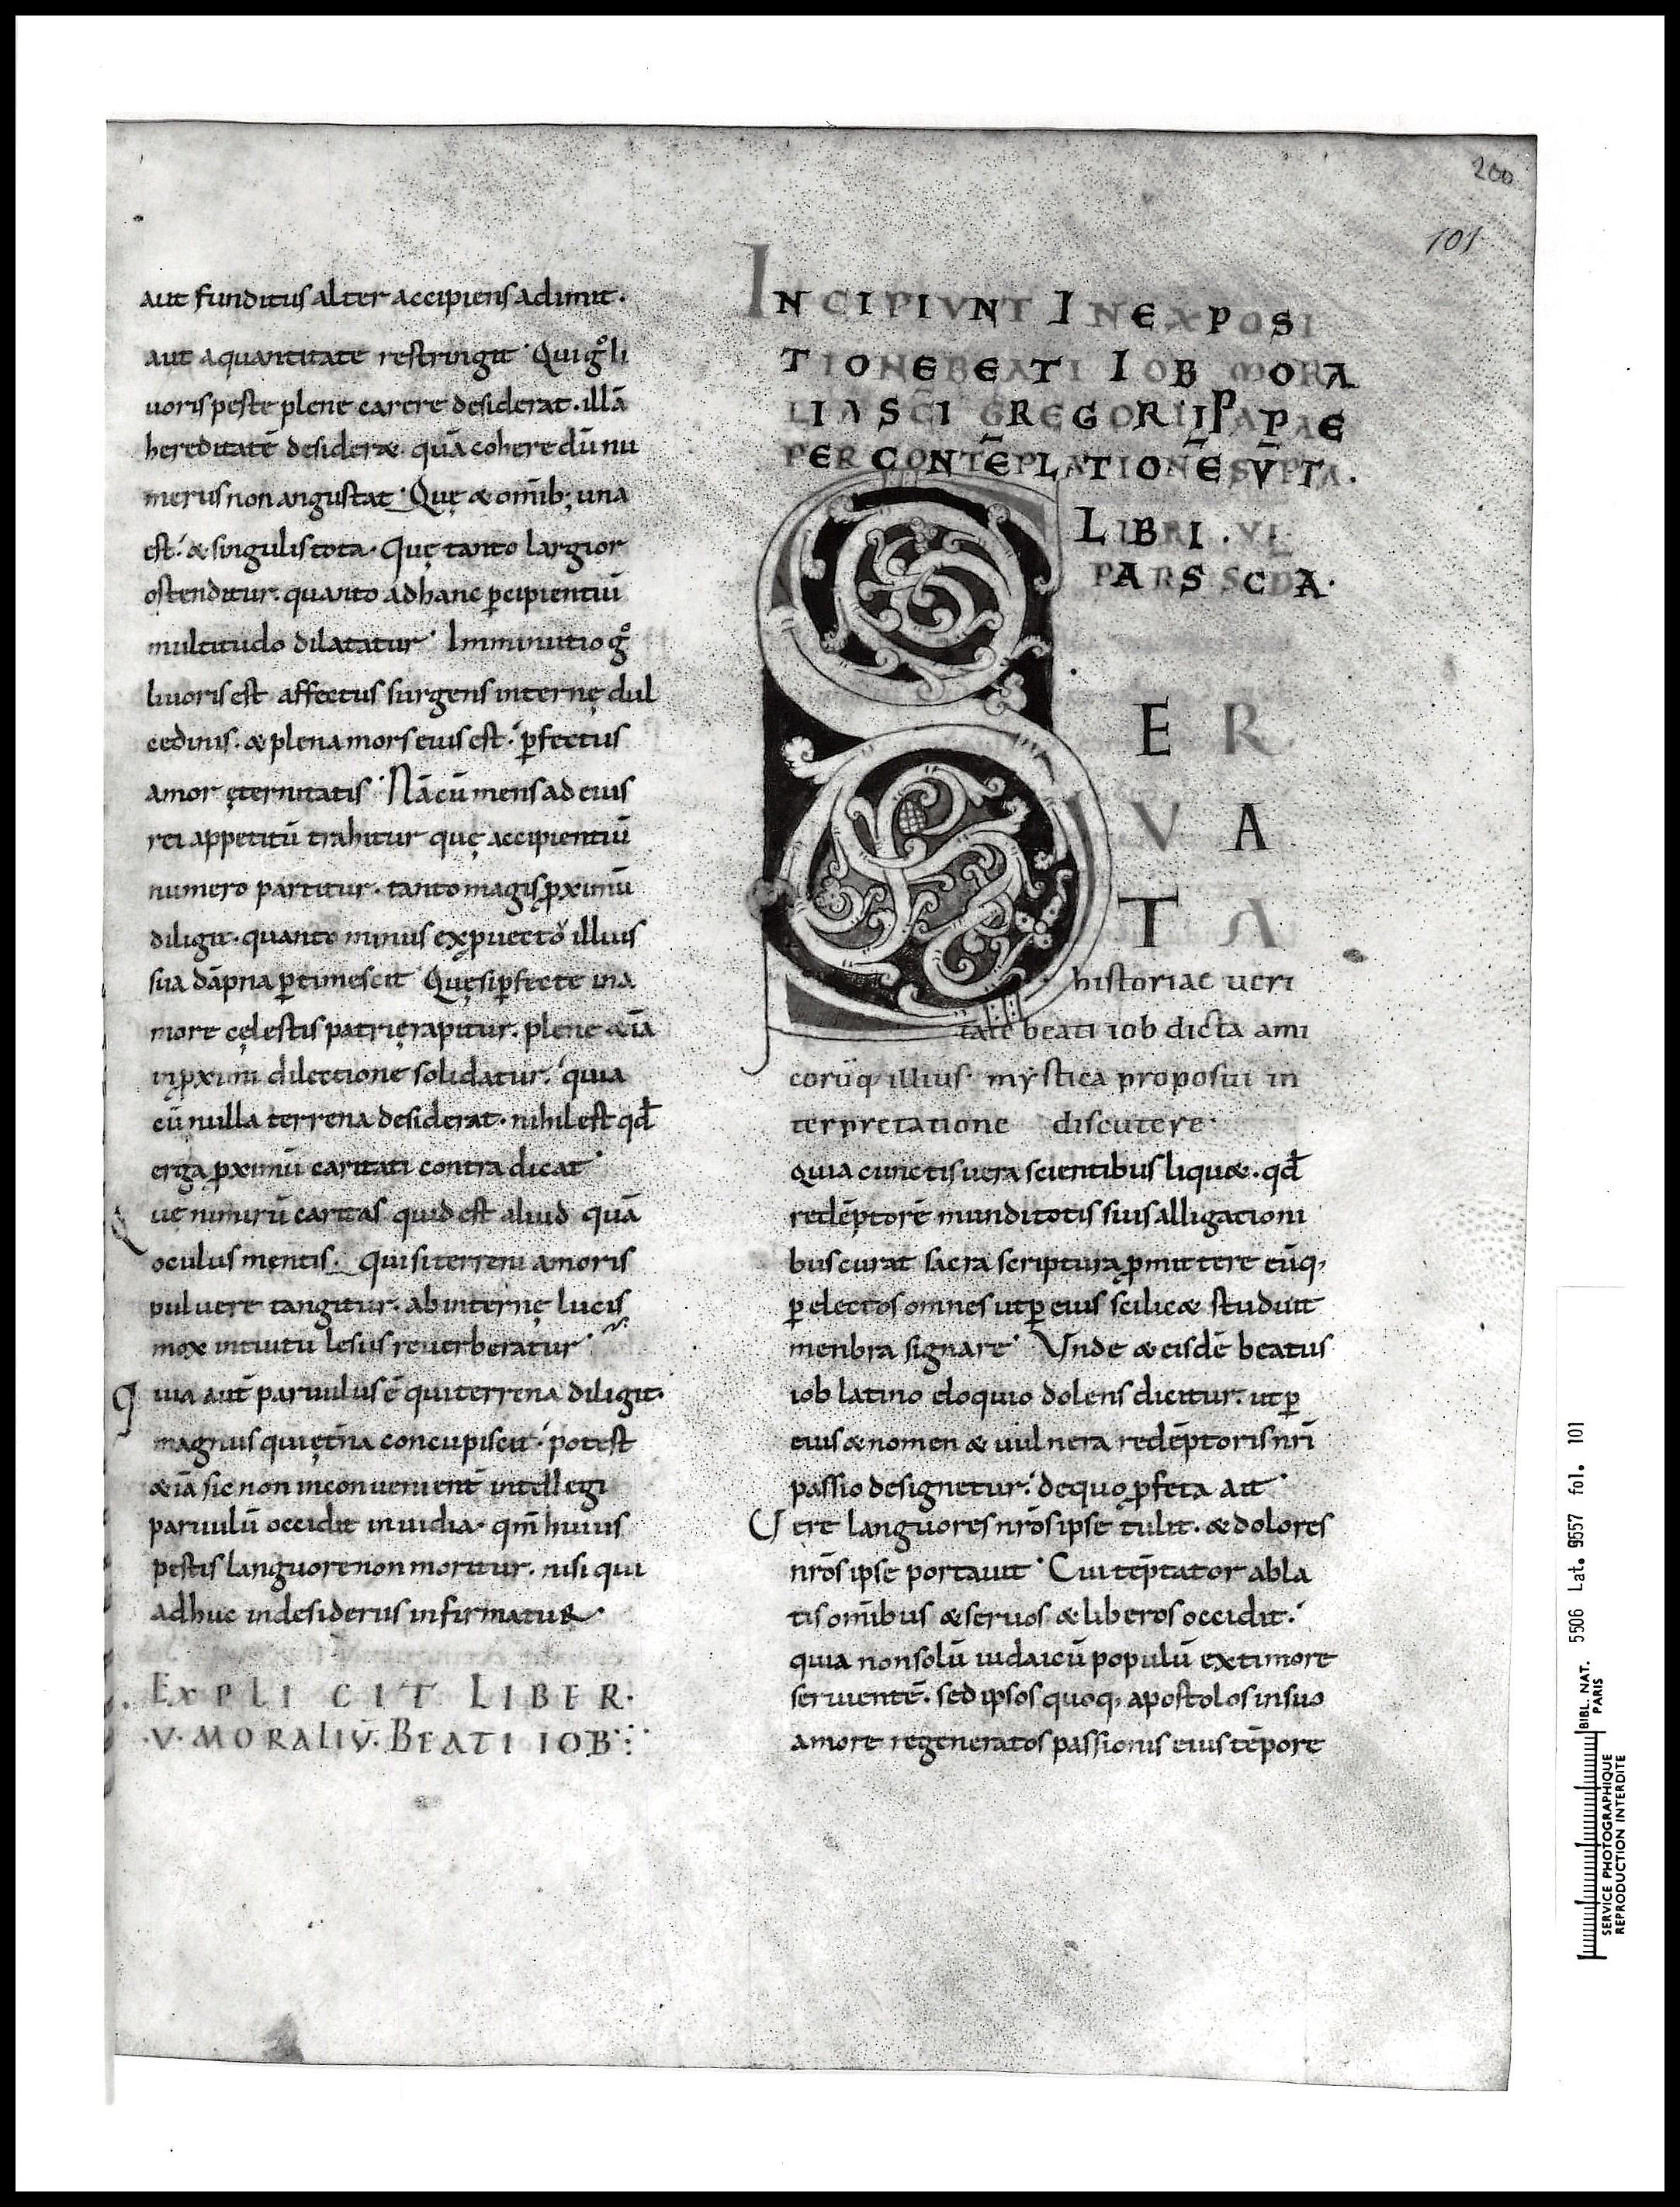 200
101
aut funditus alter accipiens adimit.
aut a quantitate restringit. Qui gͦ li
uoris peste plene carere desiderat. illā
hereditatē desideræ. quā coheredū nu
merus non angustat. Quę & omīb; una
est. & singulis tota. Quę tanto largior
ostenditur. quanto ad hanc ꝑcipientiū
multitudo dilatatur. Imminutio gͦ
liuoris est affectus surgens internę dul
cedinis. & plena mors eius est. ꝑfectus
amor ęternitatis. Nā cū mens ad eius
rei appetitū trahitur quę accipientiū
numero partitur. tanto magis ꝓximū
diligit. quanto minus ex ꝓuectō illius
sua dāpna ꝑtimescit. Quę si ꝑfecte in a
more cęlestis patrię rapitur. plene &iā
in ꝓximi dilectione solidatur. quia
cū nulla terrena desiderat. nihil est qđ
erga ꝓximū caritati contradicat.
Quę nimirū caritas quid est aliud quā
oculus mentis. Qui si terreni amoris
puluere tangitur. ab internę lucis
mox intuitu lesus reuerberatur.
quia aut̄ paruulus ē qui terrena diligit.
magnus qui ęt̄na concupiscit. potest
&iā sic non inconuenient̄ intellegi
paruulū occidit inuidia. qm̄ huius
pestis languore non moritur. nisi qui
adhuc in desideriis infirmatur.
EXPLICIT LIBER.
.V. MORALIŪ. BEATI IOB
INCIPIUNT IN EXPOSI
TIONE BEATI IOB MORA
LIA SC̄I GREGORII PAPAE
PER CONTĒPLATIONĒ SŪPTA.
LIBRI. VI.
PARS SCDA.
SER
VA
TA
historiae ueri
tate beati iob dicta ami
corūq; illius. mystica proposui in
terpretatione discutere.
quia cunctis uera scientibus liquæ. qđ
redēptorē mundi totis suis alligationi
bus curat sacra scriptura ꝓmittere eūq;
ꝑ electos omnes ut ꝑ eius scilicæ studuit
menbra signare. Vnde & eisdē beatus
iob latino eloquio dolens dicitur. ut ꝑ
eius & nomen & uulnera redēptoris nr̄i
passio designetur. de quo ꝓfeta ait.
Uere languores nr̄os ipse tulit. & dolores
nr̄os ipse portauit. Cui tēptator abla
tis omībus & seruos & liberos occidit.
quia non solū iudaicū populū ex timore
seruientē. sed ipsos quoq; apostolos in suo
amore regeneratos passionis eius tēpore
BIBL. NAT. PARIS
5506 Lat. 9557 fol. 101
SERVICE PHOTOGRAPHIQUE
REPRODUCTION INTERDITE